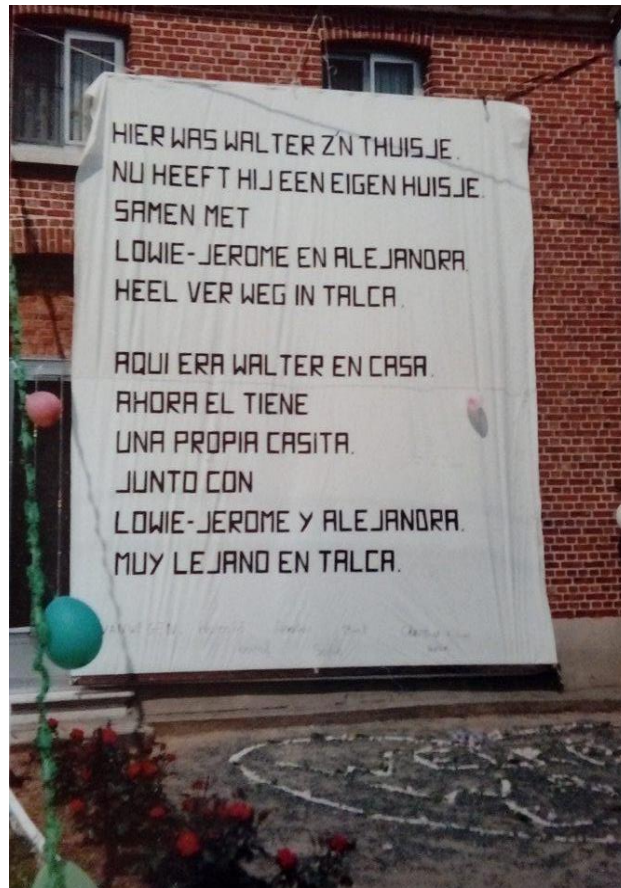 HIER WAS WALTER Z'N THUISJE.
NU HEEFT HIJ EEN EIGEN HUISJE.
SAMEN MET
LOWIE-JEROME EN ALEJANDRA.
HEEL VER WEG IN TALCA.
AQUI ERA WALTER EN CASA.
AHORA EL TIENE
UNA PROPIA CASITA.
JUNTO CON
LOWIE-JEROME Y ALEJANDRA.
MUY LEJANO EN TALCA.